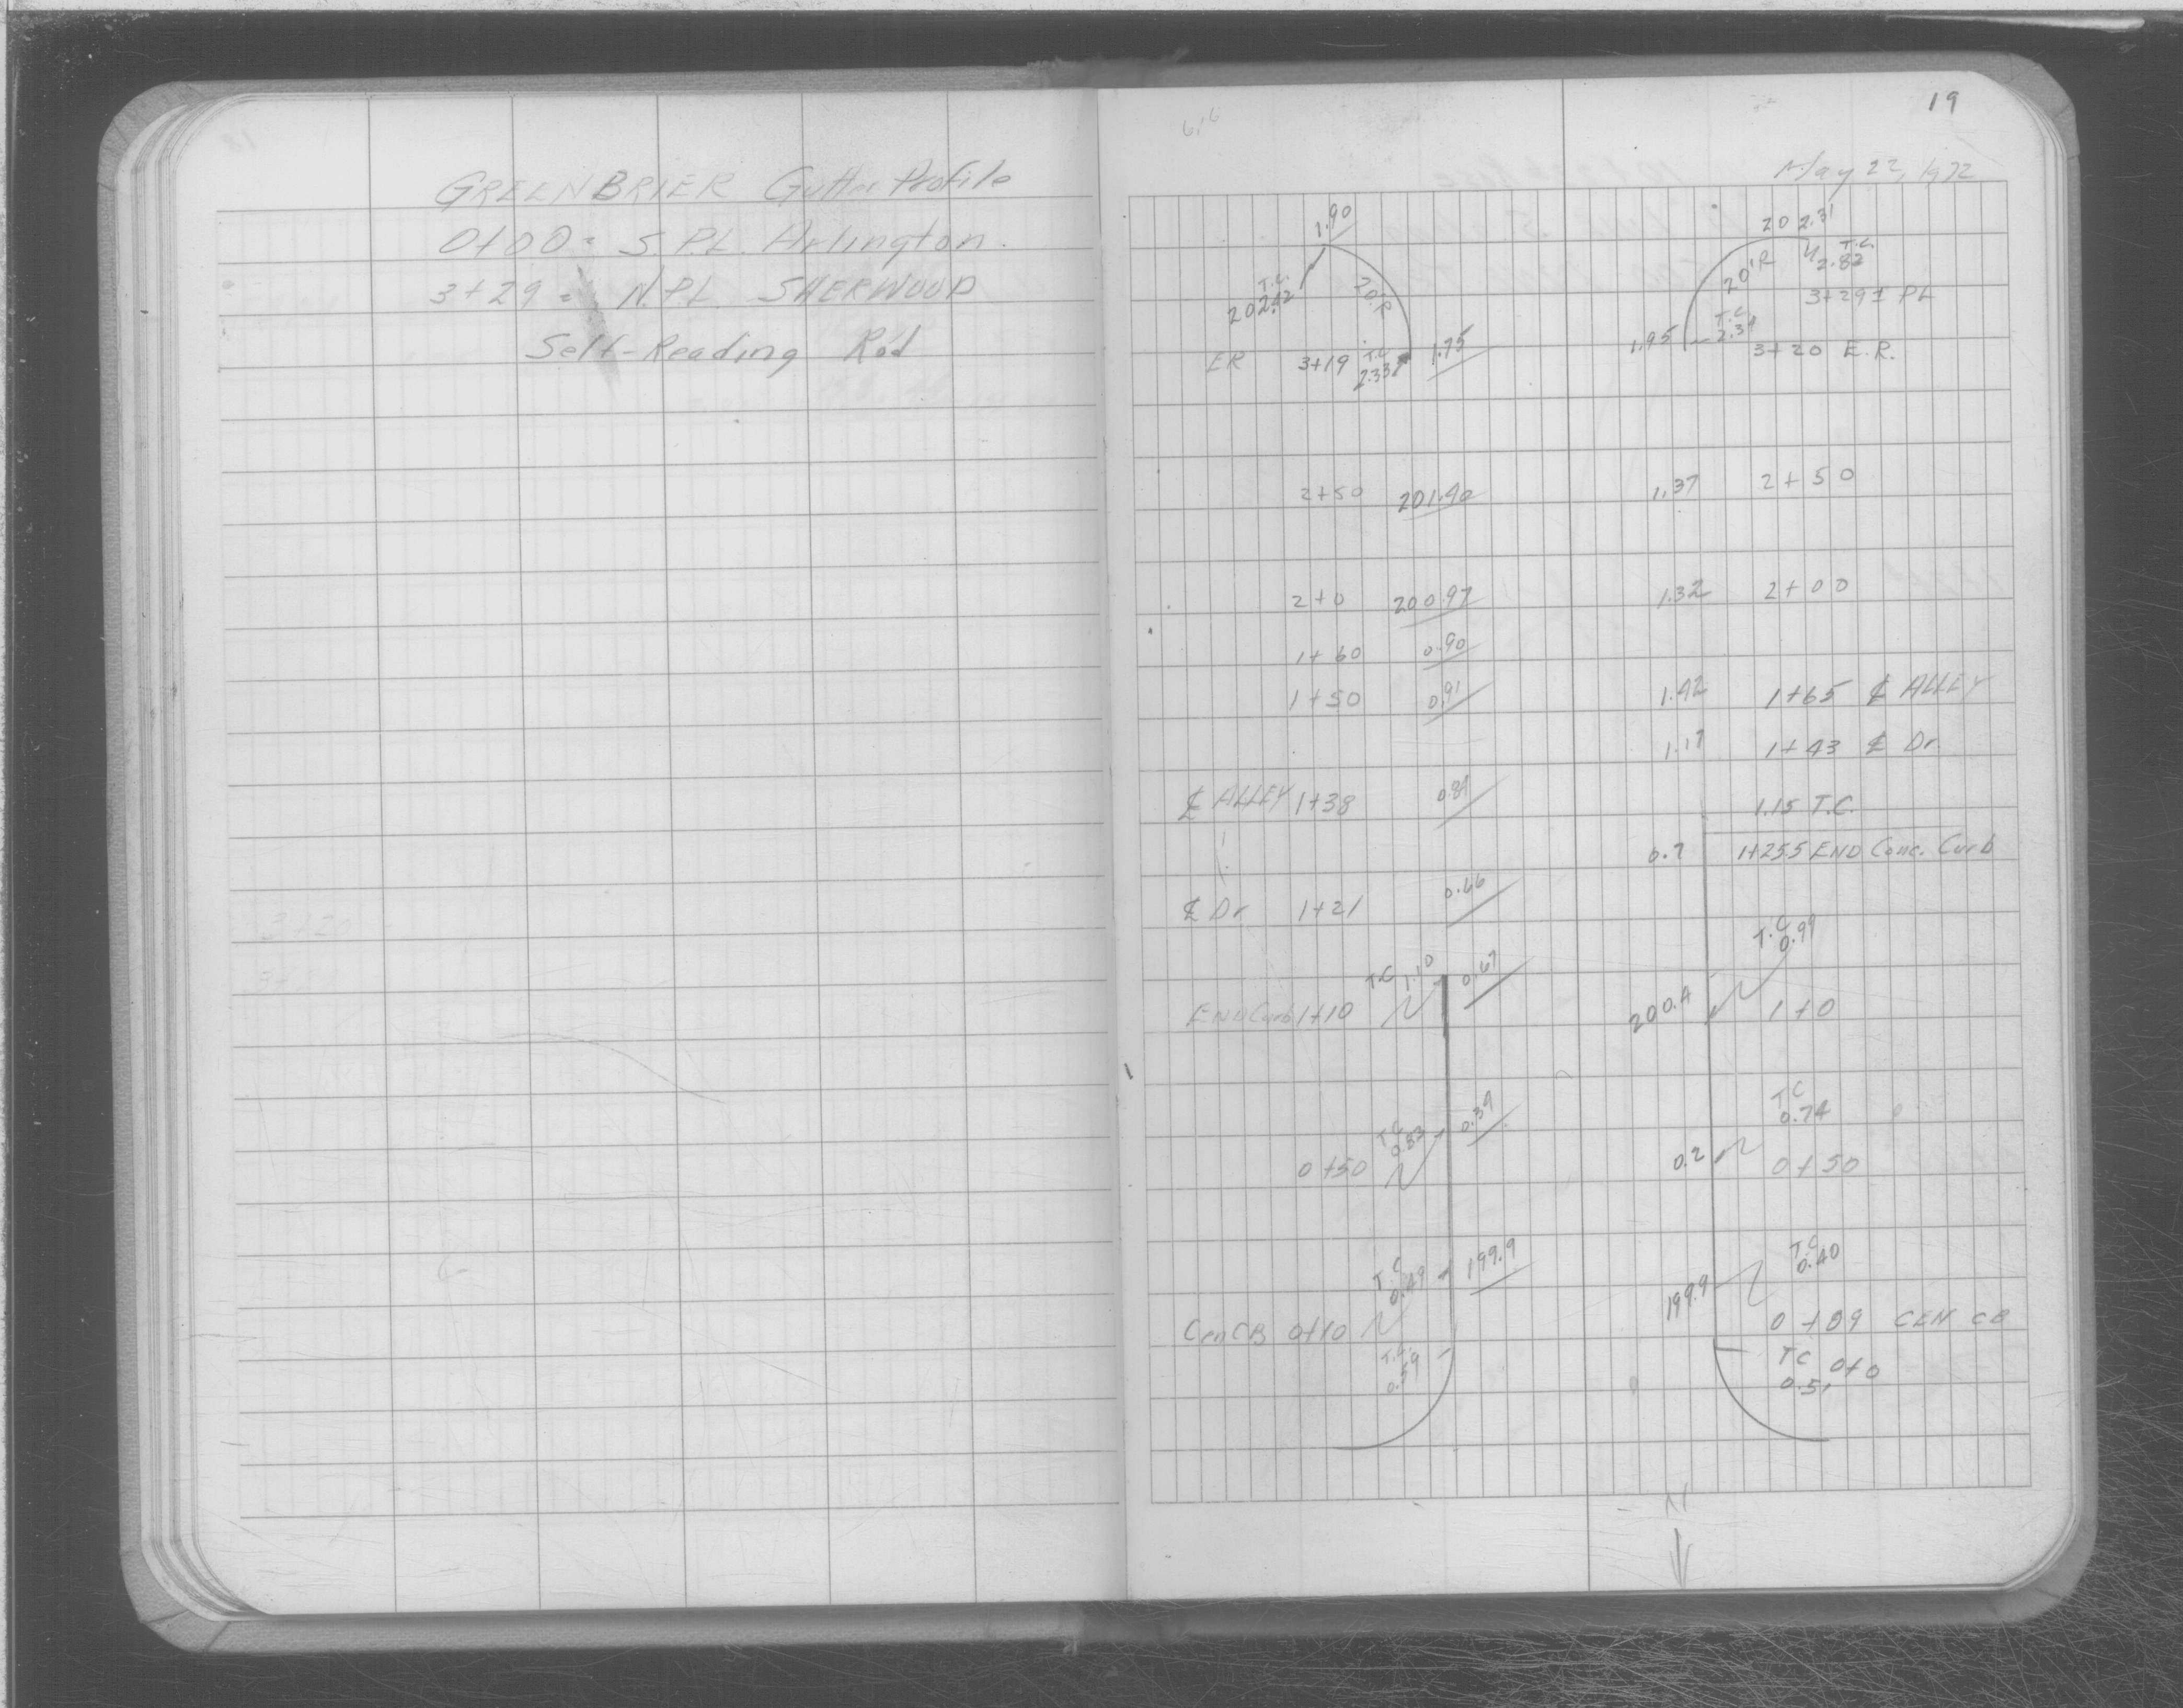 GREENBRIER Gutter Profile
0+00 = S.P.L. Arlington.
3+29 = N.P.L. SHERWOOD
Self-Reading Rod
19
May 22, 1972
1.90
202.31
T.C.
202.42
20'R
20'R
T.C.
2.82
3+29± PL
ER 3+19 T.C.
2.33
1.75
1.95
T.C.
2.34
3+20 E.R.
2+50 201.40
1.37 2+50
2+0 200.97
1.32 2+00
1+60 0.90
1+50 0.91
1.42 1+65 ℄ ALLEY
1.17 1+43 ℄ Dr.
℄ ALLEY 1+38 0.84
1.15 T.C.
0.7 1+25.5 END Conc. Curb
℄ Dr 1+21 0.66
T.C
0.99
END Curb 1+10 T.C 1.10 0.67
200.4 1+0
T.C
0.74
0+50 T.C
0.83 0.39
0.2 0+50
T.C
0.40
Cen CB 0+10 T.C
0.49 199.9
199.9 0+09 CEN CB
T.C.
0.59
TC 0+0
0.51
N